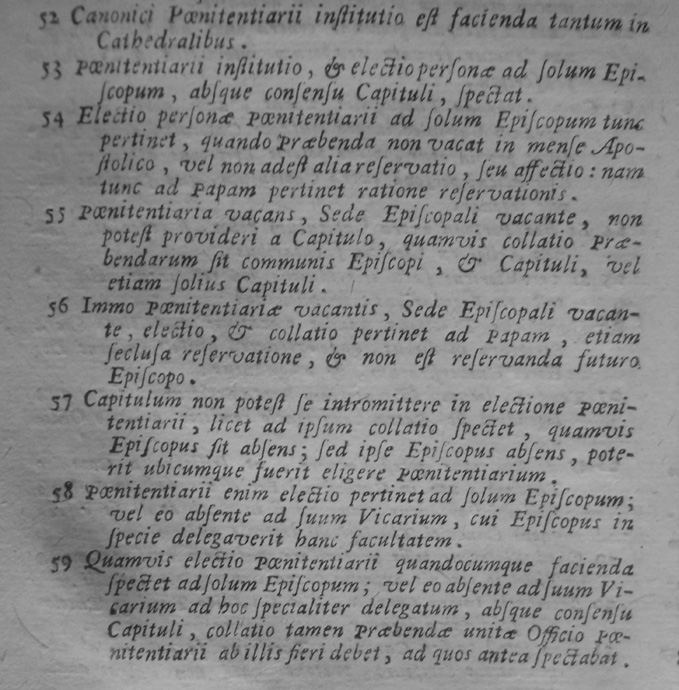 52 Canonici Pœnitentiarii inſtitutio eſt facienda tantum in
Cathedralibus.
53 Pœnitentiarii inſtitutio, & electio perſonæ ad ſolum Epi-
ſcopum, abſque conſenſu Capituli, ſpectat.
54 Electio perſonæ Pœnitentiarii ad ſolum Epiſcopum tunc
pertinet, quando Præbenda non vacat in menſe Apo-
ſtolico, vel non adeſt alia reſervatio, ſeu affectio: nam
tunc ad Papam pertinet ratione reſervationis.
55 Pœnitentiaria vacans, Sede Epiſcopali vacante, non
poteſt provideri a Capitulo, quamvis collatio Præ-
bendarum ſit communis Epiſcopi, & Capituli, vel
etiam ſolius Capituli.
56 Immo Pœnitentiariæ vacantis, Sede Epiſcopali vacan-
te, electio, & collatio pertinet ad Papam, etiam
ſecluſa reſervatione, & non eſt reſervanda futuro
Epiſcopo.
57 Capitulum non poteſt ſe intromittere in electione Pœni-
tentiarii, licet ad ipſum collatio ſpectet, quamvis
Epiſcopus ſit abſens; ſed ipſe Epiſcopus abſens, pote-
rit ubicumque fuerit eligere Pœnitentiarium.
58 Pœnitentiarii enim electio pertinet ad ſolum Epiſcopum;
vel eo abſente ad ſuum Vicarium, cui Epiſcopus in
ſpecie delegaverit hanc facultatem.
59 Quamvis electio Pœnitentiarii quandocumque facienda
ſpectet ad ſolum Epiſcopum; vel eo abſente ad ſuum Vi-
carium ad hoc ſpecialiter delegatum, abſque conſenſu
Capituli, collatio tamen Præbendæ unitæ Officio Pœ-
nitentiarii ab illis fieri debet, ad quos antea ſpectabat.